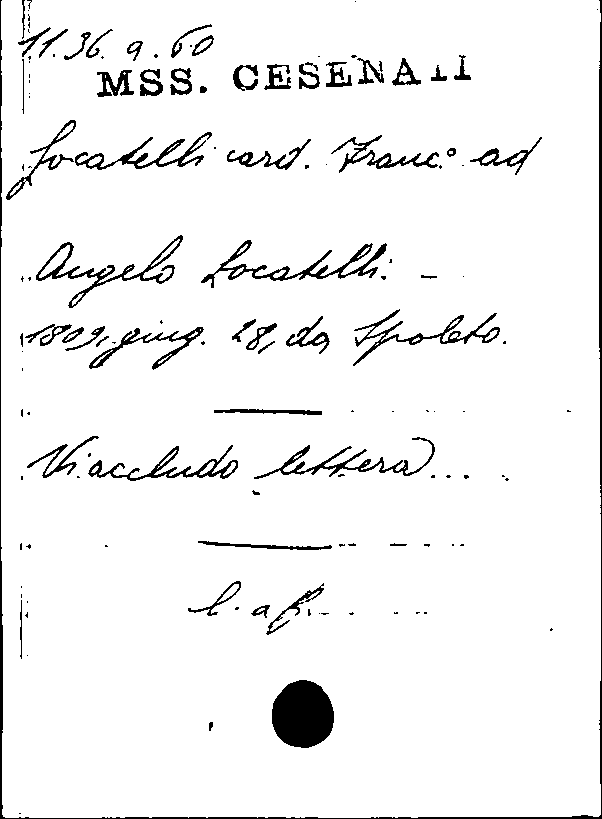 11.36.9.60
MSS. CESENATI
Locatelli card. Franc.° ad
Angelo Locatelli. -
1809, giug. 28, da Spoleto.
Vi accludo lettera...
l. a f.